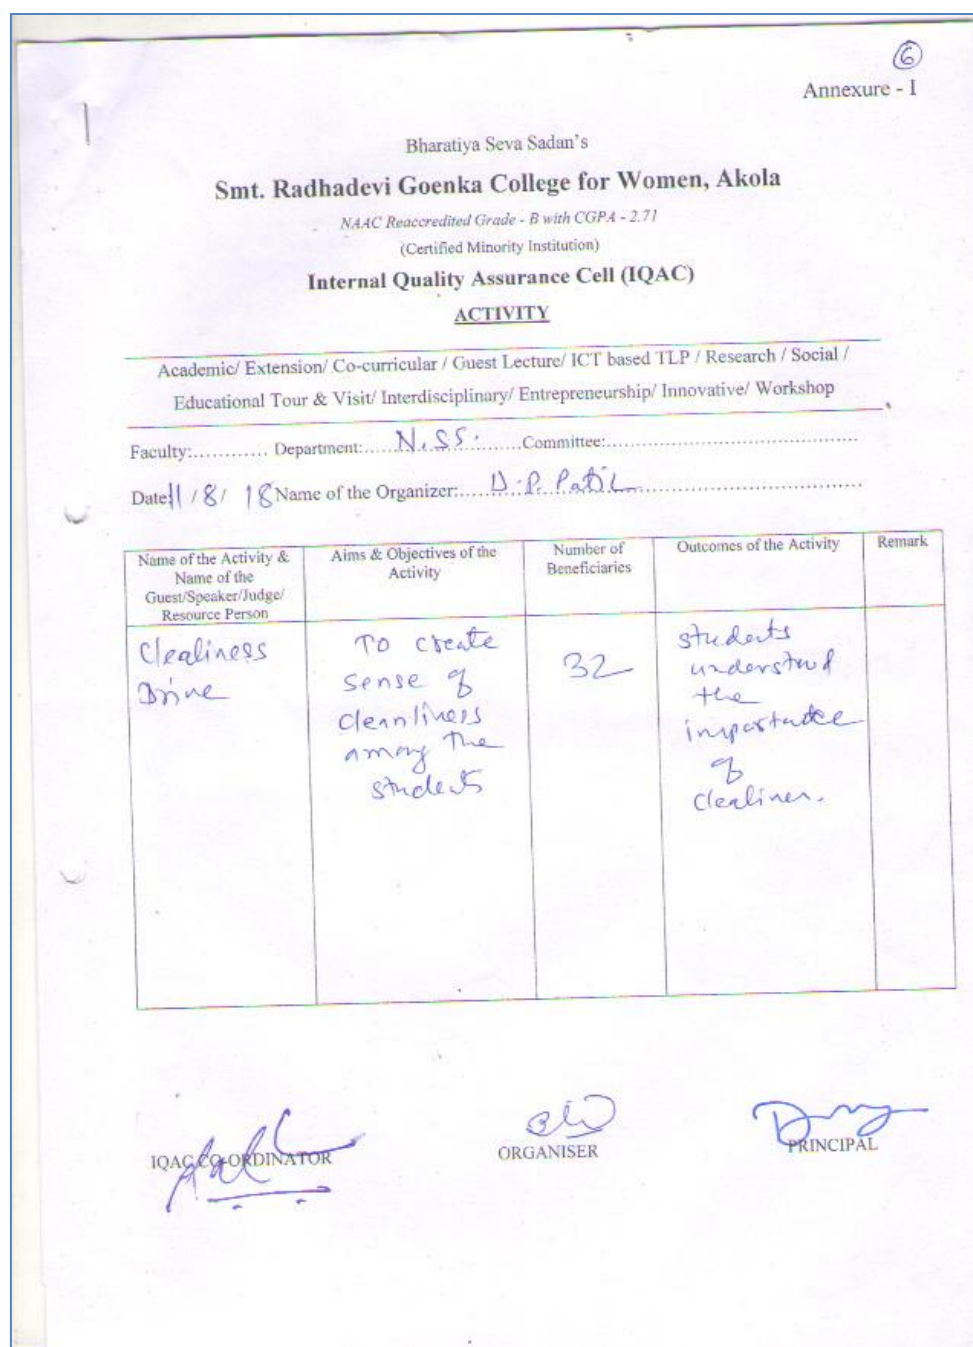 6
Annexure - I
Bharatiya Seva Sadan's
Smt. Radhadevi Goenka College for Women, Akola
NAAC Reaccredited Grade - B with CGPA - 2.71
(Certified Minority Institution)
Internal Quality Assurance Cell (IQAC)
ACTIVITY
Academic/ Extension/ Co-curricular / Guest Lecture/ ICT based TLP / Research / Social /
Educational Tour & Visit/ Interdisciplinary/ Entrepreneurship/ Innovative/ Workshop
Faculty:............ Department:......N.SS.........Committee:..........................................
Date:11/8/ 18 Name of the Organizer:......D.P. Patil.......................................
Name of the Activity &
Name of the
Guest/Speaker/Judge/
Resource Person
Aims & Objectives of the
Activity
Number of
Beneficiaries
Outcomes of the Activity
Remark
Clealiness
Drive
To create
sense of
cleanliness
among the
students
32
students
understand
the
importance
of
clealiness.
IQAC CO-ORDINATOR
ORGANISER
PRINCIPAL